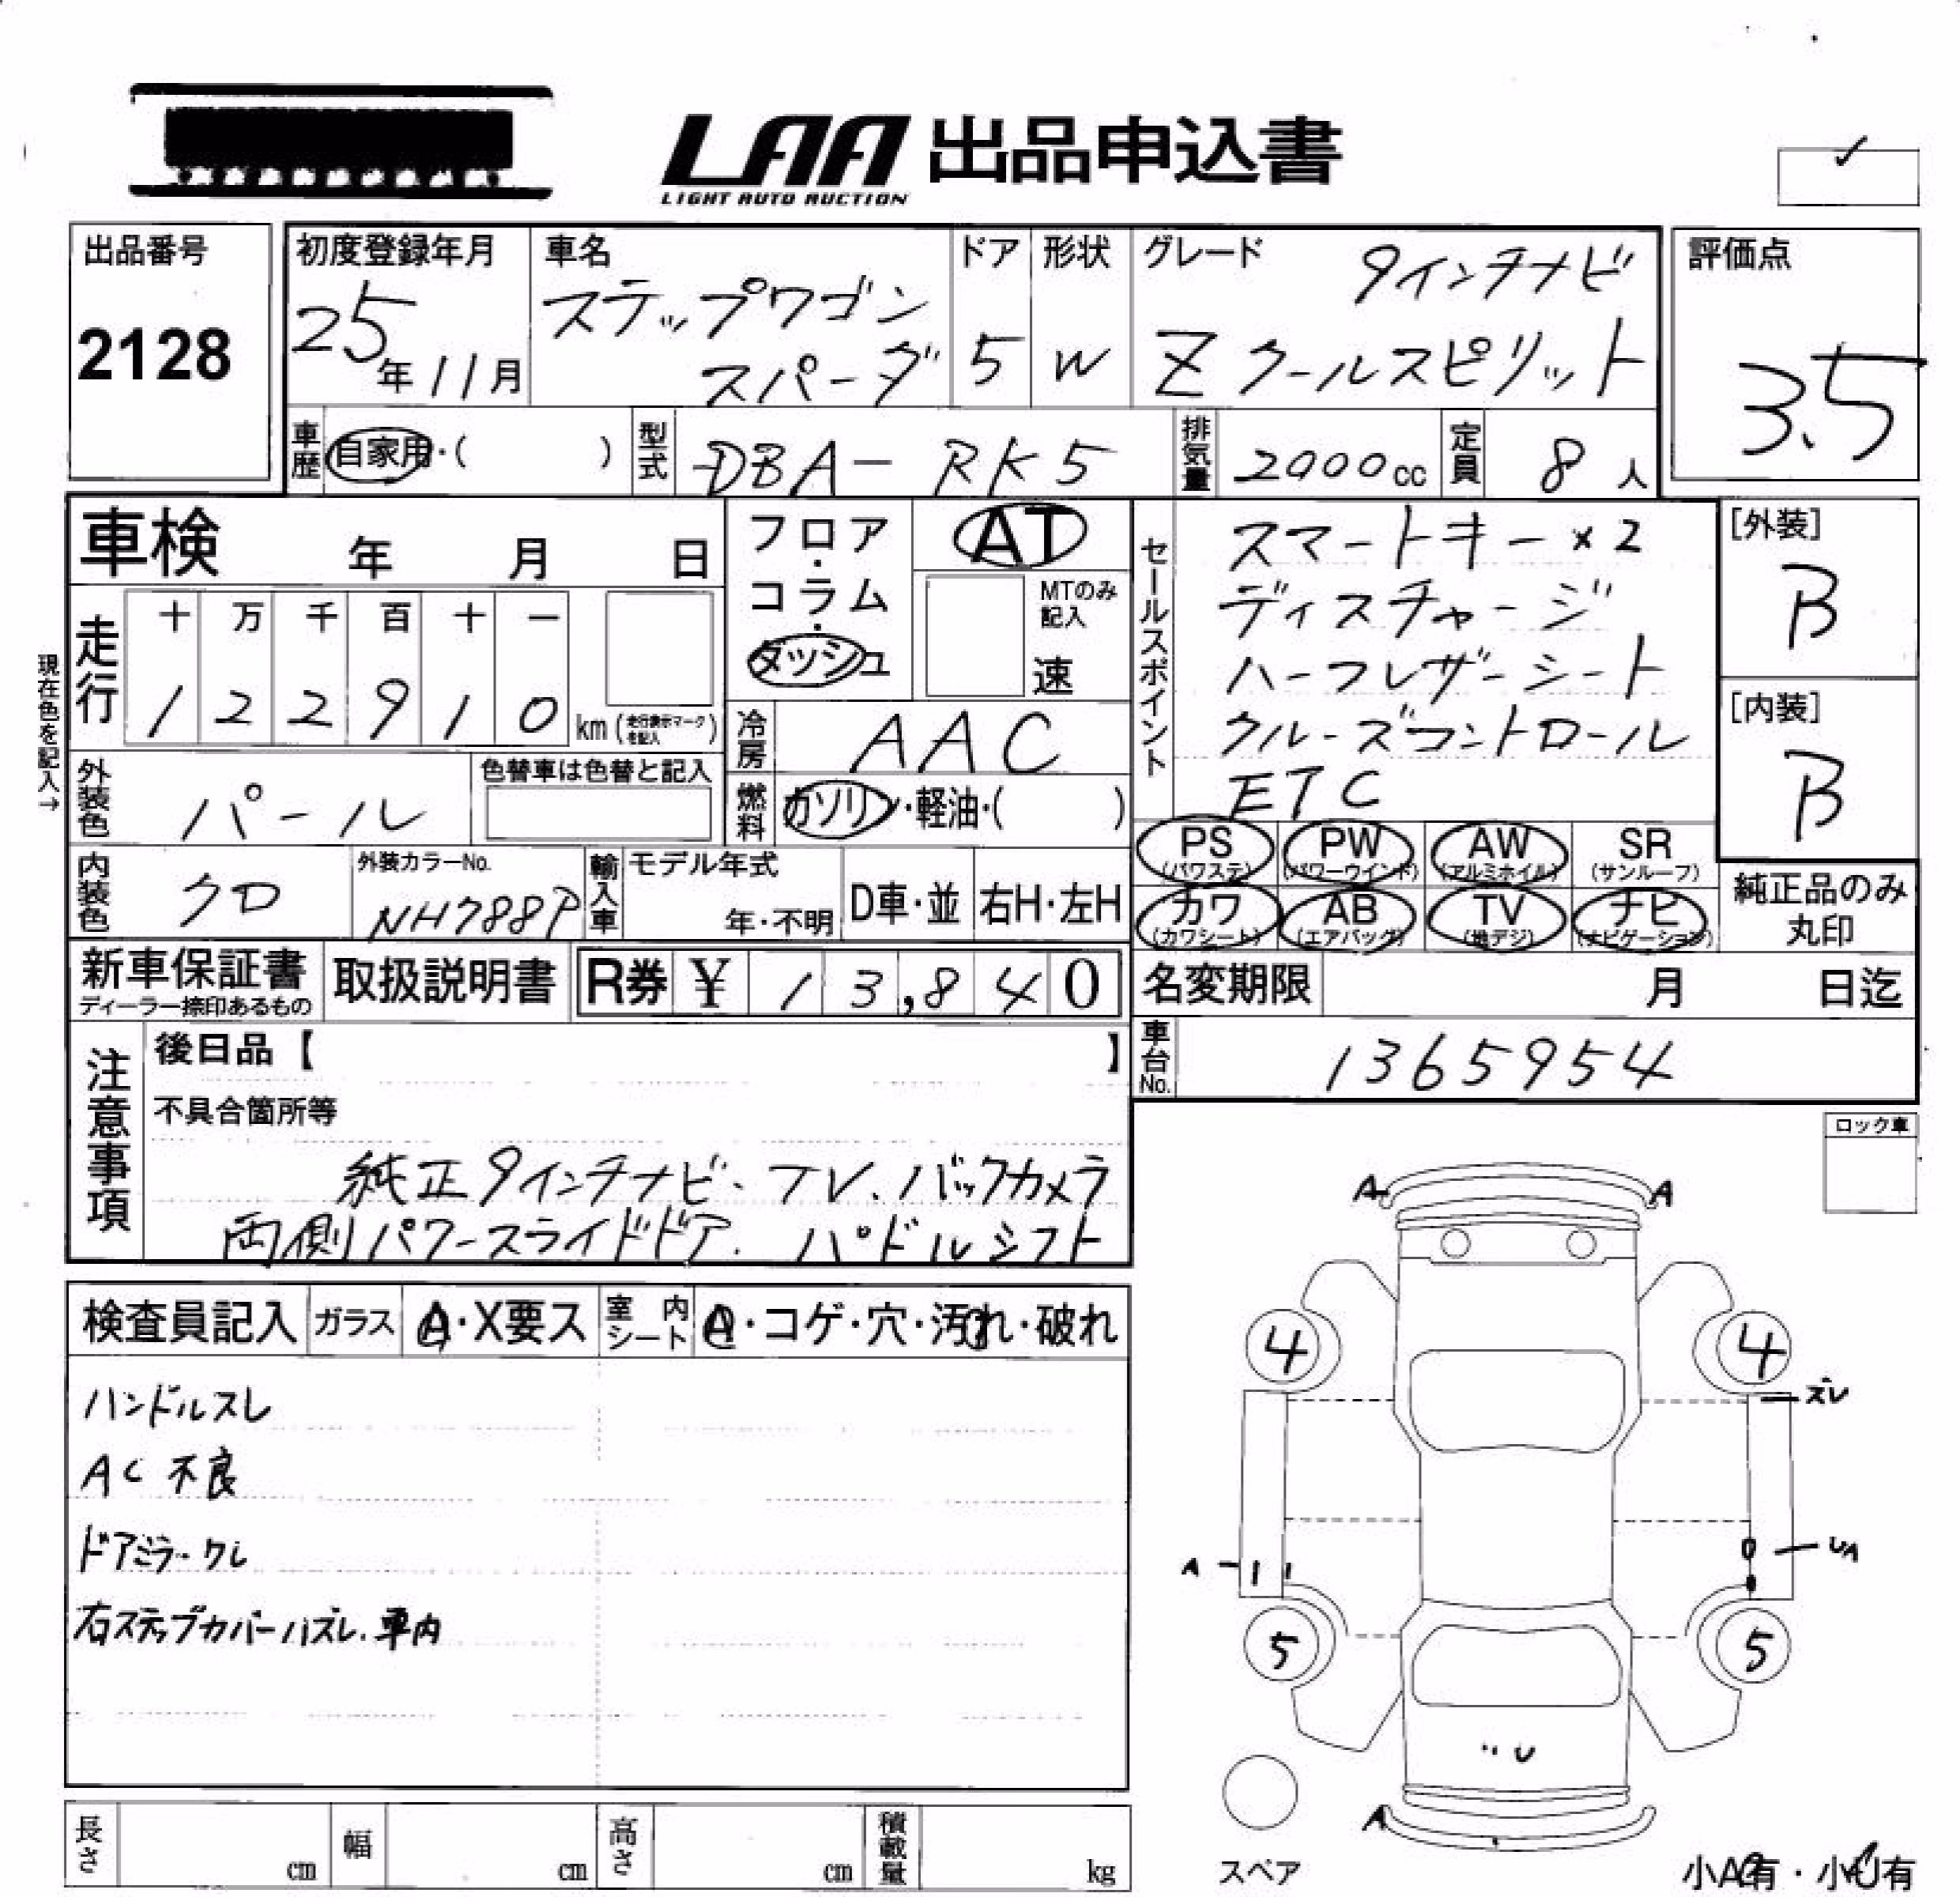 LAA 出品申込書
LIGHT AUTO AUCTION
出品番号
2128
初度登録年月
25年11月
車名
ステップワゴン
スパーダ
ドア
5
形状
W
グレード
9インチナビ
Z クールスピリット
評価点
3.5
車歴
自家用・( )
型式
DBA-RK5
排気量
2000cc
定員
8人
車検 年 月 日
フロア・コラム・ダッシュ
AT
MTのみ記入
速
セールスポイント
スマートキー×2
ディスチャージ
ハーフレザーシート
クルーズコントロール
ETC
[外装]
B
[内装]
B
現在色を記入→
走行
十 万 千 百 十 一
1 2 2 9 1 0 km (走行表示マークを記入)
冷房
AAC
外装色
パール
色替車は色替と記入
燃料
ガソリン・軽油・( )
PS (パワステ)
PW (パワーウインド)
AW (アルミホイル)
SR (サンルーフ)
カワ (カワシート)
AB (エアバッグ)
TV (地デジ)
ナビ (ナビゲーション)
純正品のみ
丸印
内装色
クロ
外装カラーNo.
NH788P
輸入車
モデル年式
年・不明
D車・並
右H・左H
新車保証書
ディーラー捺印あるもの
取扱説明書
R券 ¥ 13,840
名変期限 月 日迄
車台No.
1365954
注意事項
後日品【 】
不具合箇所等
純正9インチナビ・TV、バックカメラ
両側パワースライドドア、パドルシフト
ロック車
検査員記入
ガラス
A・X要ス
室内シート
・コゲ・穴・汚れ・破れ
ハンドルスレ
AC不良
ドアミラークレ
右ステップカバーハズレ、車内
A
A
4
4
ズレ
A
UA
5
5
U
A
スペア
小A有・小U有
長さ cm
幅 cm
高さ cm
積載量 kg